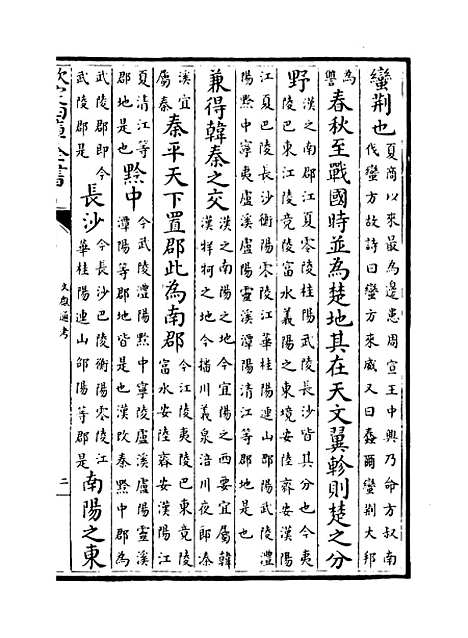 蠻荆也
夏商以來最為邊患周宣王中興乃命方叔南
伐蠻方故詩曰蠻方來威又曰蠢爾蠻荆大邦
為
讐
春秋至戰國時並為楚地其在天文翼軫則楚之分
野
漢之南郡江夏零陵桂陽武陵長沙皆其分也今夷
陵巴東江陵竟陵富水義陽之東境安陸齊安漢陽
江夏巴陵長沙衡陽零陵江華桂陽連山邵陽武陵澧
陽黔中寧夷盧溪靈溪潭陽清江等郡地是也
兼得韓秦之交
漢之南陽之地今宜陽之西要宜屬韓
漢牂柯之地今播川義泉涪川夜郎溱
溪宜
屬秦
秦平天下置郡此為南郡
今江陵夷陵巴東竟陵
富水安陸齊安漢陽江
夏清江等
郡地是也
黔中
今武陵澧陽黔中寧陵盧溪盧陽靈溪
潭陽等郡地皆是也漢改秦黔中郡為
武陵郡即今
武陵郡是
長沙
今長沙巴陵衡陽零陵江
華桂陽連山邵陽等郡是
南陽之東
欽定四庫全書
文獻通考
二